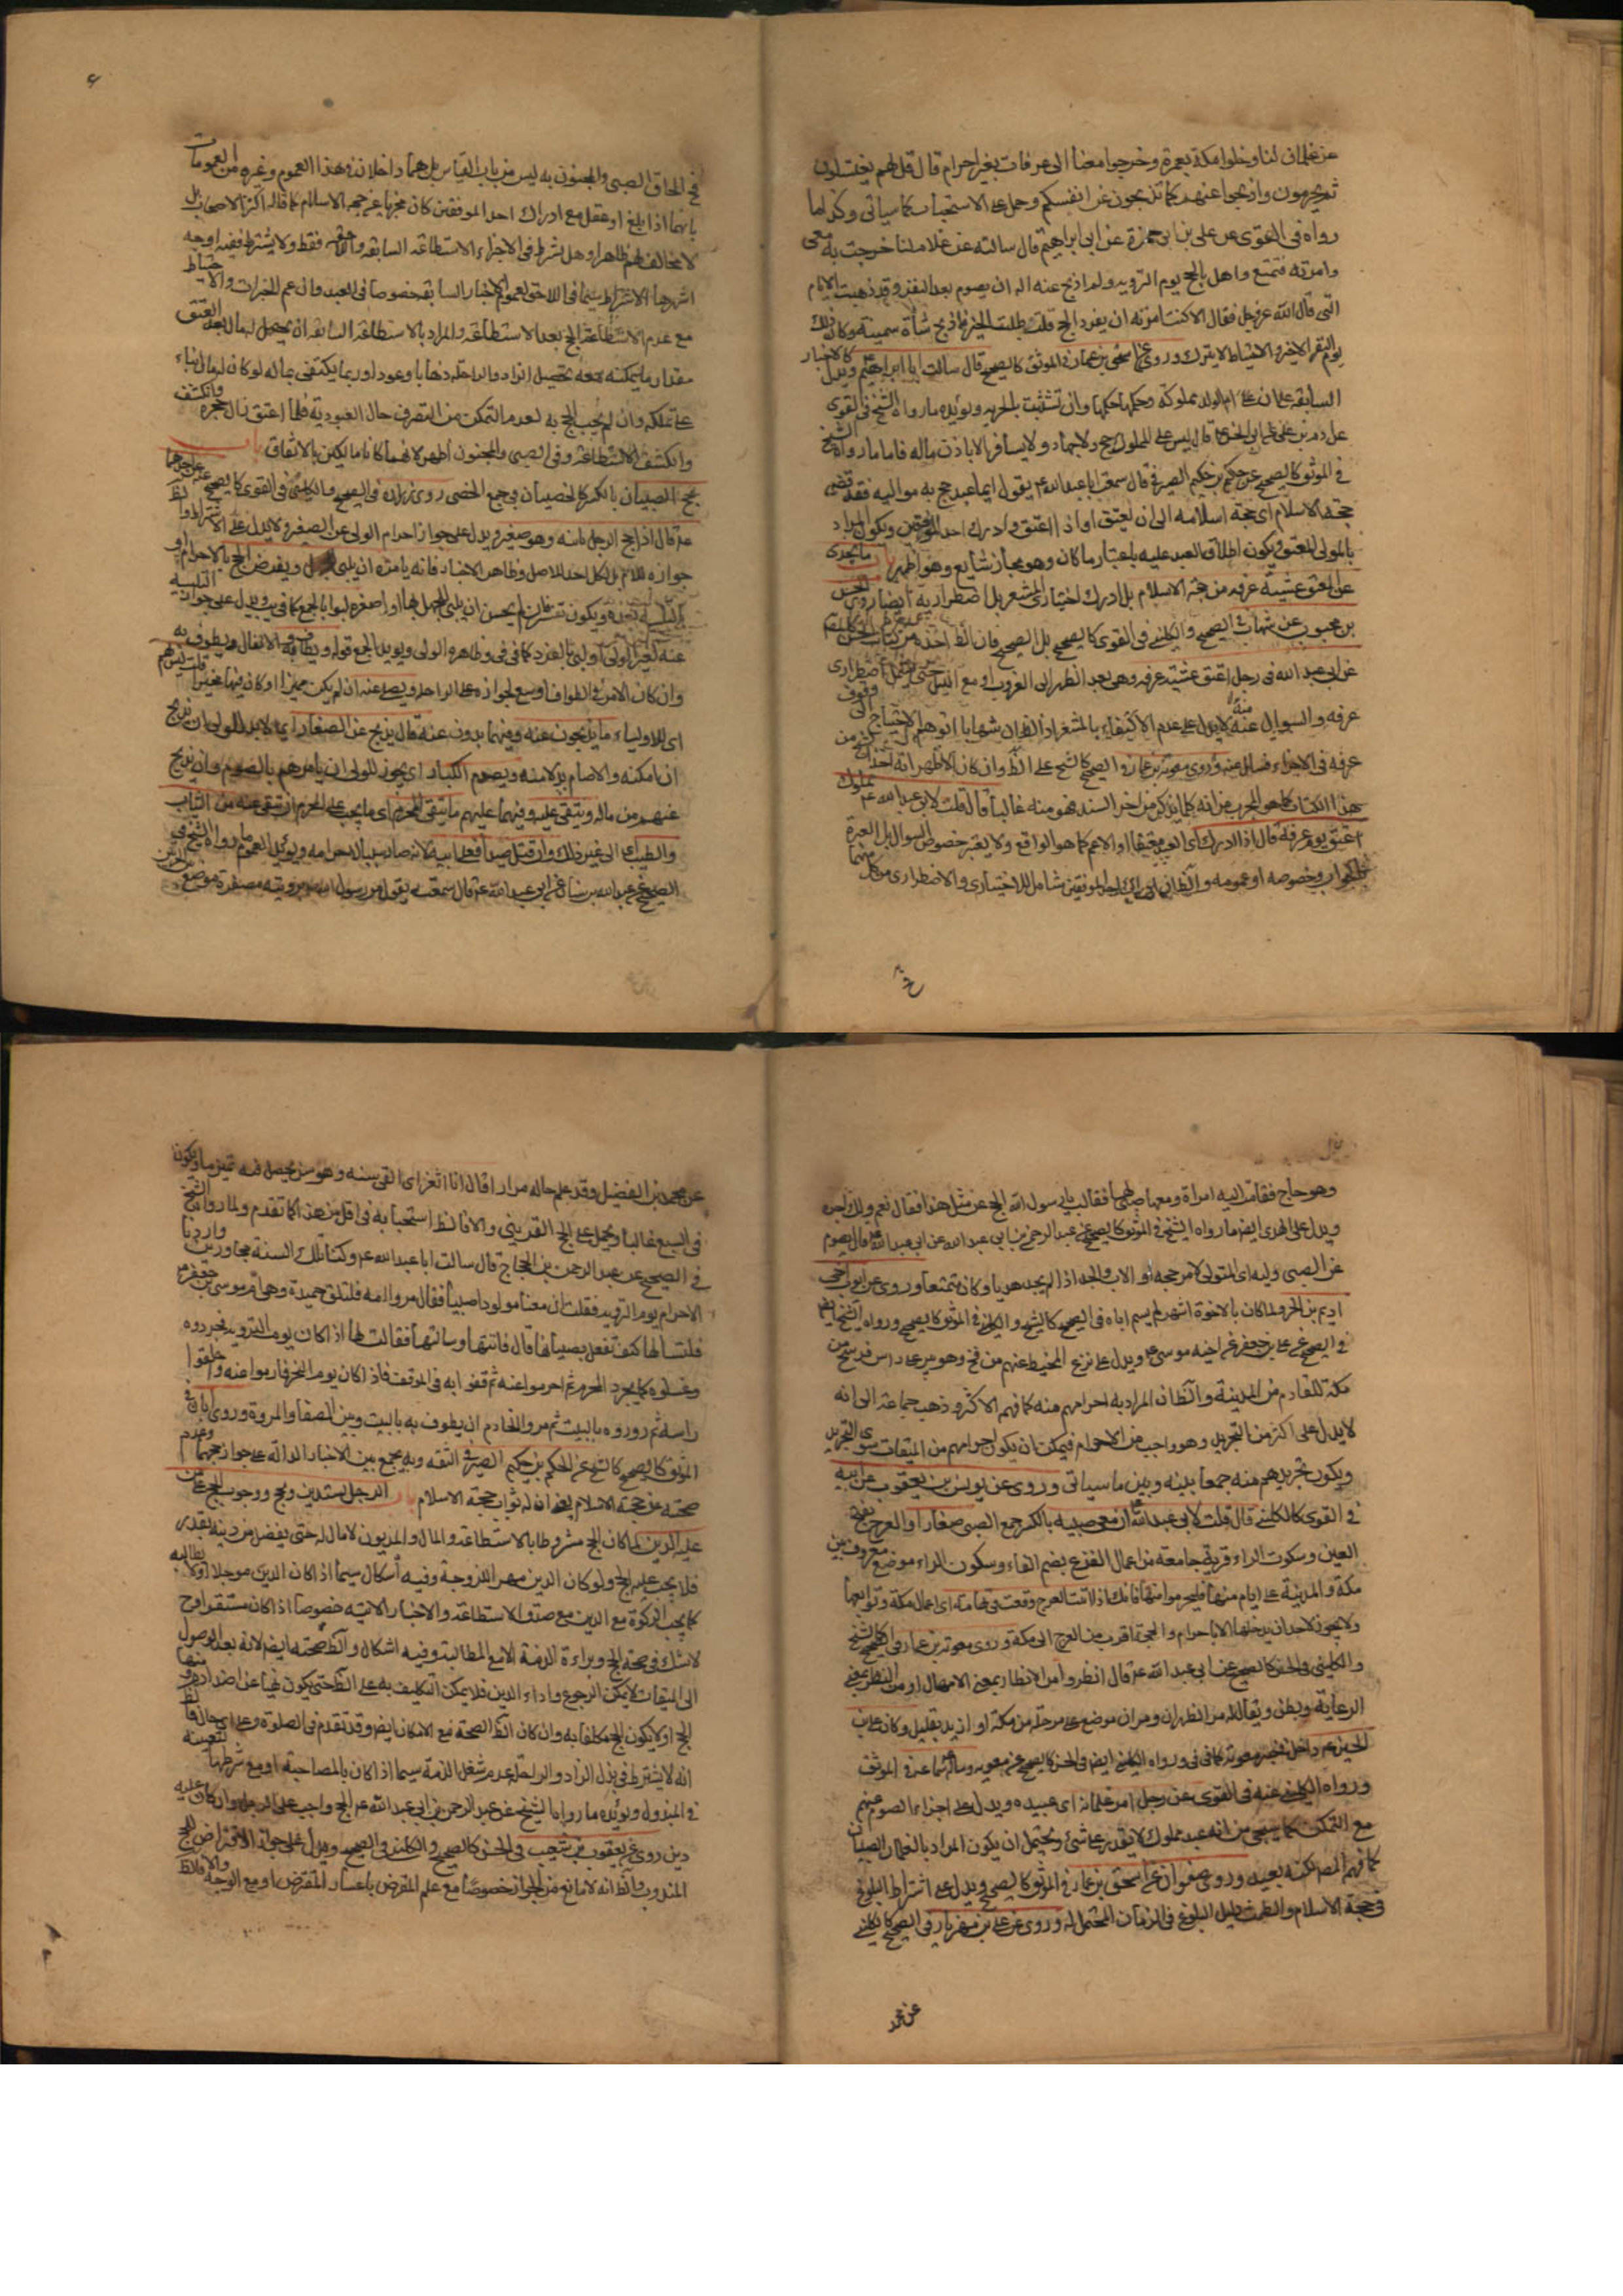 عن غلمان لنا دخلوا مكة بعمرة وخرجوا معنا الى عرفات بغير احرام قال قل لهم يغتسلون
ثم يحرمون واذبحوا عنهم كما تذبحون عن انفسكم وحمل على الاستحباب كما سياتى وكذا ما
رواه فى القوى عن على بن ابى حمزة عن ابى ابراهيم قال سالته عن غلام لنا خرجت به معى
وامرته فتمتع واهل بالحج يوم التروية ولم اذبح عنه اله ان يصوم بعد النفر وقد ذهبت الايام
التى قال الله عز وجل فقال الا كنت امرته ان يفرد الحج قلت طلبت الخير فاذبح شاة سمينة وكان ذلك
يوم النفر الاخير والاحتياط لا يترك وروى عن اسحق بن عمار فى الموثق كالصحيح قال سالت ابا ابراهيم ويدل كالاخبار
السابقة على ان ام الولد مملوكة وحكمها حكمها وان تشبثت بالحرية ويؤيده ما رواه الشيخ فى القوى
عن ادم بن على عن ابى الحسن قال ليس على المملوك حج ولا جهاد ولا يسافر الا باذن مالكه فاما ما رواه الشيخ
فى الموثق كالصحيح عن حكم بن حكيم الصيرفى قال سمعت ابا عبد الله ع يقول ايما عبد حج به مواليه فقد قضى
حجة الاسلام اى حجة اسلامه الى ان يعتق او اذا اعتق وادرك احد الموقفين ويكون المراد
بالمولى المعتق ويكون اطلاق العبد عليه باعتبار ما كان وهو مجاز شايع وهو اظهر باب ما يجزى
عن المعتق عشية عرفة من حجة الاسلام بل ادرك اختيارى المشعر بل اضطراريه ايضا روى الحسن
بن محبوب عن شهاب فى الصحيح والكلينى فى القوى كالصحيح بل الصحيح فان الظ اخذه من كتاب الحسن
عن ابى عبد الله فى رجل اعتق عشية عرفة وهى بعد الظهر الى الغروب او مع الليل حتى يشمل اضطرارى
عرفة والسؤال عنه لا يدل على عدم الاكتفاء بالمشعر اذ الظ ان شهابا توهم الاحتياج الى وقوف
عرفة فى الاجزاء فسال عنه وروى معوية بن عمار فى الصحيح كالشيخ على الظ وان كان الاظهر انه اخذ من
هذا الكتاب كما هو المجرب من انه كلما يذكر من اخر السند فهو منه غالبا قال قلت لابى عبد الله ع مملوك
اعتق يوم عرفة قال اذا ادرك اى العبد معتقا او الاعم كما هو الواقع ولا يعتبر خصوص السوال بل العبرة
بالجواب وخصوصه او عمومه والظ ان ادراك احد الموقفين شامل للاختيارى والاضطرارى من كل منهما
فى الحاق الصبى والمجنون به ليس من باب القياس بل هما داخلان فى هذا العموم وغيره من العمومات
بانهما اذا بلغ او عقل مع ادراك احد الموقفين كان مجزيا عن حجة الاسلام كما قاله اكثر الاصحاب بل
لا مخالف لهم ظاهرا وهل يشترط فى الاجزاء الاستطاعة السابقة واللاحقة فقط ولا يشترط ففيه اوجه
اشهرها الاشتراط سيما فى اللاحق لعموم الاخبار السابقة خصوصا فى العبد وان عم الخيرات والاحتياط
مع عدم الاستطاعة الحج بعد الاستطاعة والمراد بالاستطاعة السابقة ان يحصل له مال بعد العتق
مقدار ما يمكنه معه تحصيل الزاد والراحلة ذهابا وعودا وربما يكتفى بماله لو كان له مال بناء
على تملكه وان لم يجب الحج به لعدم التمكن من التصرف حال العبودية فلما اعتق زال حجره وانكشف
وانكشف الاستطاعة وفى الصبى والمجنون اظهر لانهما كانا مالكين بالاتفاق باب
حج الصبيان بالكسر كالخصيان فى جمع الخصى روى زرارة فى الصحيح والكلينى فى القوى كالصحيح عن احدهما
ع قال اذا حج الرجل بابنه وهو صغير ويدل على جواز احرام الولى عن الصغير ولا يدل على الاشتراط
جوازه للام بل لكل احد للاصل وظاهر الاخبار فانه يامره ان يلبى ويفرض الحج بالاحرام او
عنه لغير الولى او لبى بالمفرد كما فى فى وظاهره الولى ويؤيد الجمع قوله ويطاف به
وان كان الامر فى الطواف اوسع لجوازه على الراحلة ويصلى عنه ان لم يكن مميزا
اى للاولياء ما يذبحون عنه وفيهما يرون عنه قال يذبح عن الصغار اى لا بد للولى ان يذبح
ان امكنه والا صام بدلا منه ويصوم الكبار اى يجوز للولى ان يامرهم بالصوم وان يذبح
عنهم من ماله ويتقى عليه وفيهما عليهم ما يتقى المحرم اى ما يجب على المحرم ان يتقى عنه من الثياب
والطيب الى غير ذلك وان قتل صيدا فعلى ابيه لانه صار سببا لاحرامه ويؤيد العموم ما رواه الشيخ فى
الصحيح عن عبد الله بن سنان عن ابى عبد الله ع قال سمعته يقول مر رسول الله برويثة
وهو حاج فقامت اليه امراة ومعها صبى لها فقالت يا رسول الله الحج عن مثل هذا فقال نعم ولك اجره
ويدل على الهدى ايضا ما رواه الشيخ فى الموثق كالصحيح عن عبد الرحمن بن ابى عبد الله عن ابى عبد الله قال يصوم
عن الصبى وليه اى المتولى لامر حجه او الاب والجد اذا لم يجد هديا وكان متمتعا وروى عن ايوب اخى
اديم بن الحر ولما كان بالاخوة اشهر لم يسم اباه فى الصحيح كالشيخ والكلينى فى الموثق كالصحيح ورواه الشيخ ايضا
فى الصحيح عن على بن جعفر عن اخيه موسى ع ويدل على نزع المخيط عنهم من فخ وهو بئر على راس فرسخ من
مكة للقادم من المدينة والظ ان المراد به احرامهم منه كما فهم الاكثر وذهب جماعة الى انه
لا يدل على اكثر من التجريد وهو واجب من الاحرام فيمكن ان يكون احرامهم من الميقات سوى التجريد
ويكون تجريدهم منه جمعا بينه وبين ما سياتى وروى عن يونس بن يعقوب عن ابيه
فى القوى كالكلينى قال قلت لابى عبد الله ان معى صبية بالكسر جمع الصبى صغارا والعرج بفتح
العين وسكون الراء قرية جامعة من اعمال الفرع بضم الفاء وسكون الراء موضع معروف بين
مكة والمدينة على ايام منها فليحرموا منها فانك اذا اتيت العرج وقعت فى تهامة اى اعمال مكة وتوابعها
ولا يجوز لاحد ان يدخلها الا باحرام والجحفة اقرب من العرج الى مكة وروى معوية بن عمار فى الصحيح كالشيخ
والكلينى فى الحسن كالصحيح عن ابى عبد الله ع قال انظروا امر من الانظار بمعنى الامهال او من النظر بمعنى
الرعاية وبطن ويقال له مر الظهران ومران موضع على مرحلة من مكة او ازيد بقليل وكان على بن
الحسين ع داخل فى خبر معوية كما فى فى ورواه الكلينى ايضا فى الحسن كالصحيح عن معوية وساله سماعة فى الموثق
ورواه الكلينى عنه فى القوى عن رجل امر غلمانه اى عبيده ويدل على اجزاء الصوم عنهم
مع التمكن كما سيجئ من انه عبد مملوك لا يقدر على شئ ويحتمل ان يكون المراد بالغلمان الصبيان
كما فهم المصنف لكنه بعيد وروى صفوان عن اسحق بن عمار فى الموثق كالصحيح ويدل على اشتراط البلوغ
فى حجة الاسلام والطمث دليل البلوغ فى الزمان المحتمل له وروى عن على بن مهزيار فى الصحيح كالكلينى
عن محمد
عن محمد بن الفضيل وقد علم حاله مرارا قال اذا اثغر اى القى سنه وهو من يحصل فيه تميز ما ويكون
فى السبع غالبا ويحمل على الحج التمرينى والا فالظ استحبابه فى اقل من هذا كما تقدم ولما رواه الشيخ
فى الصحيح عن عبد الرحمن بن الحجاج قال سالت ابا عبد الله ع وكنا تلك السنة مجاورين واردنا
الاحرام يوم التروية فقلت ان معنا مولودا صبيا فقال مروا امه فلتلق حميدة وهى ام موسى بن جعفر ع
فلتسالها كيف تفعل بصبيانها قال فاتتها وسالتها فقالت لها اذا كان يوم التروية فجردوه
وغسلوه كما يجرد المحرم ثم احرموا عنه ثم قفوا به فى الموقف فاذا كان يوم النحر فارموا عنه واحلقوا
راسه ثم زوروه بالبيت ثم مروا الخادم ان يطوف به بالبيت وبين الصفا والمروة وروى ابان فى
الموثق كالصحيح كالشيخ عن الحكم بن حكيم الصيرفى الثقة وبه يجمع بين الاخبار الدالة على جواز حجهما وعدم
صحته عن حجة الاسلام يعنى ان له ثواب حجة الاسلام باب الرجل يستدين ويحج ووجوب الحج على من
عليه الدين لما كان الحج مشروطا بالاستطاعة والمال والمديون لا مال له حتى يفضل من دينه بقدر
فلا يجب عليه الحج ولو كان الدين مهر الزوجة وفيه اشكال سيما اذا كان الدين مؤجلا او لا يطالبه
كما يجب الزكوة مع الدين مع صدق الاستطاعة والاخبار الاتية خصوصا اذا كان مستقرا وح
لا شك فى صحة الحج وبراءة الذمة الا مع المطالبة وفيه اشكال والظ صحته ايضا لانه بعد الوصول
الى الميقات لا يمكن الرجوع واداء الدين فلا يمكن التكليف به على الظ حتى يكون نهيا عن اضداده ومنها
الحج او لا يكون الحج مكلفا به وان كان الظ الصحة مع الامكان ايضا وقد تقدم فى الصلوة وعلى اى حال فا
انه لا يشترط فى بذل الزاد والراحلة عدم شغل الذمة سيما اذا كان بالمصاحبة او مع شرطها
فى المبذول ويؤيده ما رواه الشيخ عن عبد الرحمن بن ابى عبد الله ع الحج واجب على الرجل وان كان عليه
دين روى عن يعقوب بن شعيب فى الحسن كالصحيح والكلينى فى الصحيح ويدل على جواز الاقتراض للحج
المندوب والظ انه لا مانع من الجواز خصوصا مع علم المقرض باعسار المقترض او مع الوجه والا فلا